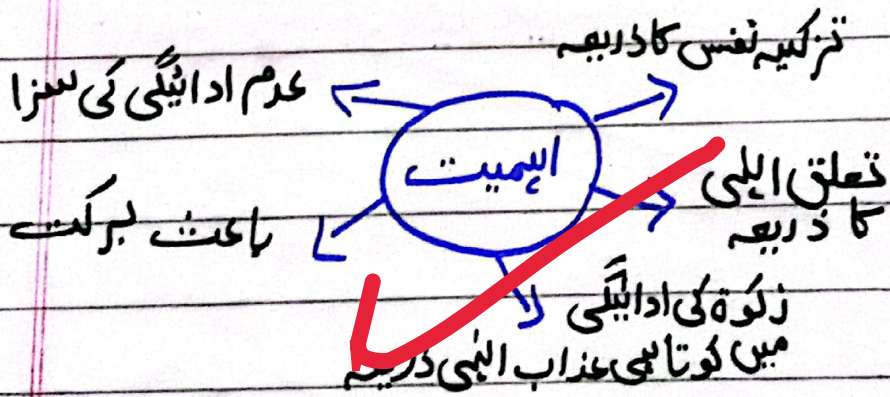 تزکیہ نفس کا ذریعہ
عدم ادائیگی کی سزا
اہمیت
تعلق الہی
کا ذریعہ
باعث برکت
زکوۃ کی ادائیگی
میں کوتاہی عذاب الہی ذریعہ